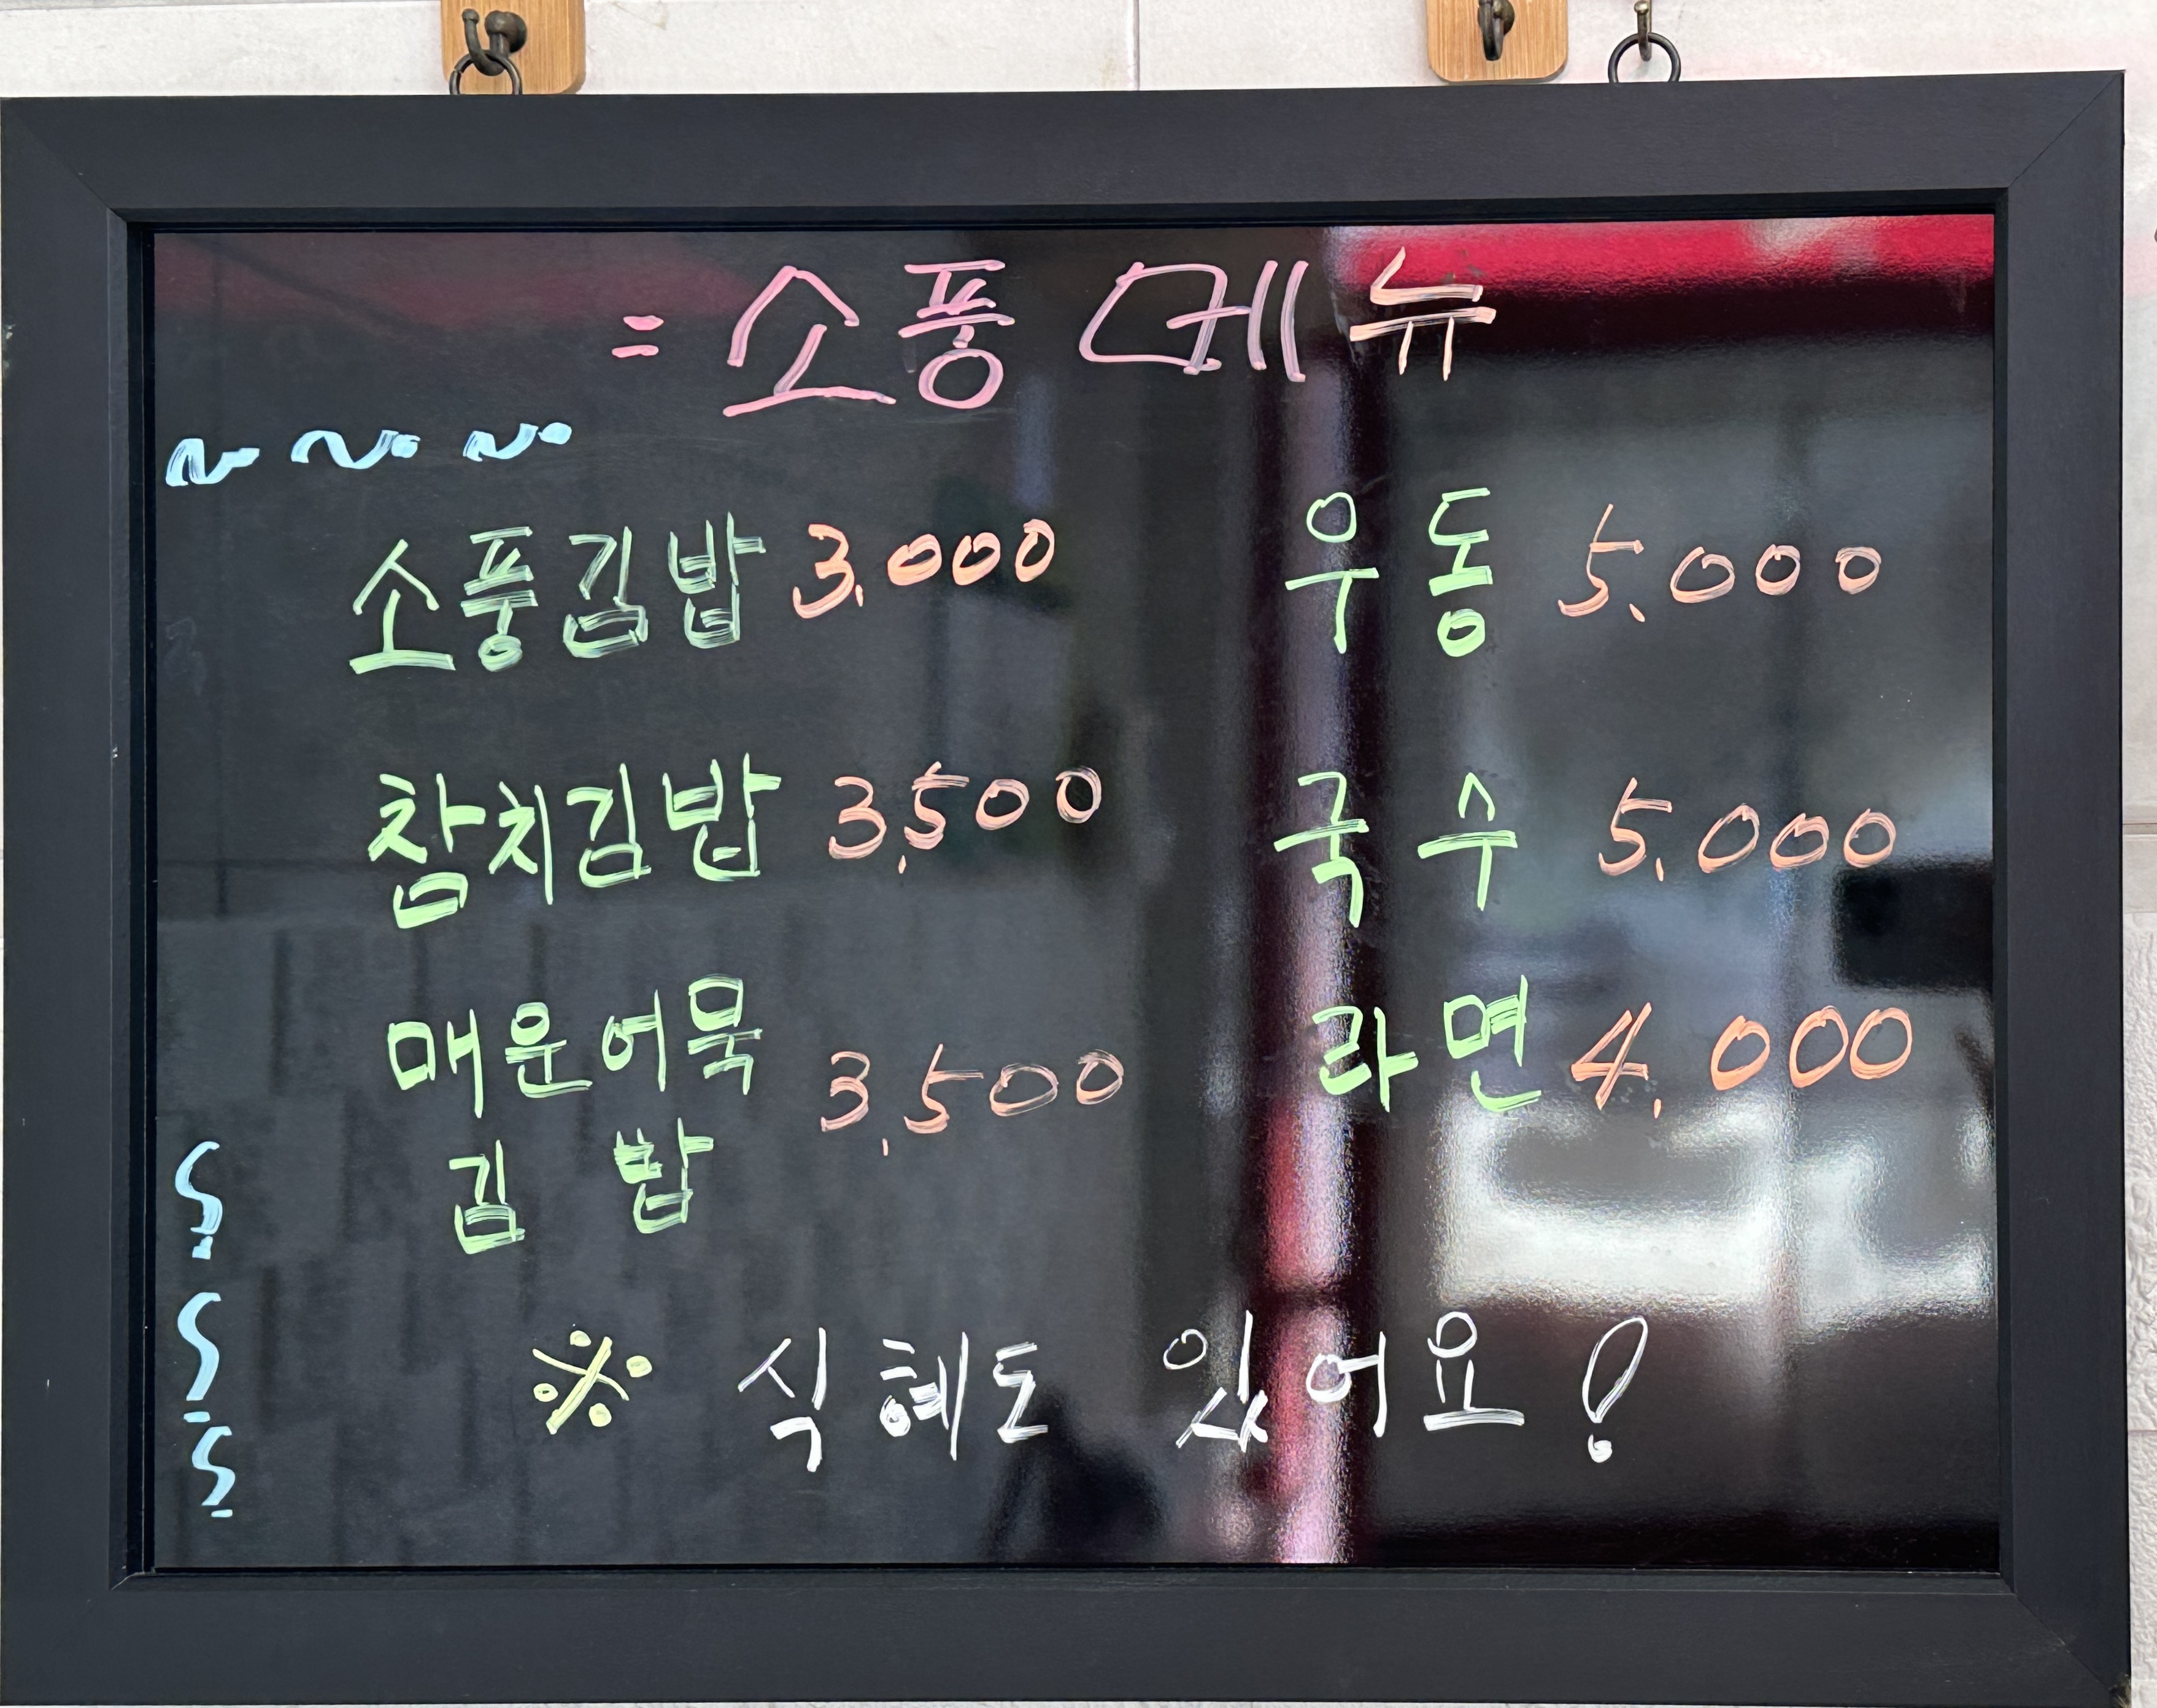 = 소풍 메뉴
소풍김밥 3,000
참치김밥 3,500
매운어묵
김밥 3,500
우동 5,000
국수 5,000
라면 4,000
※ 식혜도 있어요!